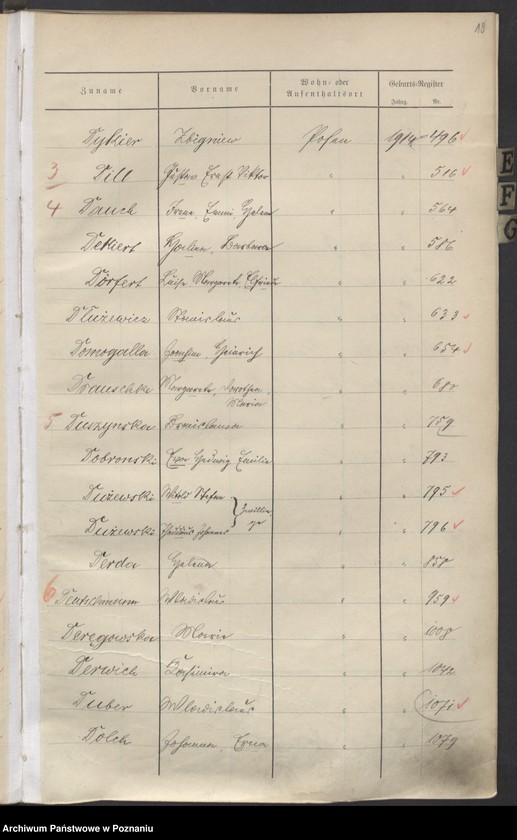 18
Zuname Vorname Wohn- oder Aufenthaltsort Geburts-Register
Jahrg. Nr.
Dytkier Zbigniew Posen 1914 496
3 Dill Gustav Ernst Viktor " " 516
4 Dauch Irene, Emmi, Helene " " 564
Dekiert Barbara " " 586
Dörfert Luise Margarete Elfriede " " 622
Dłużewicz Stanislaus " " 633
Domogalla Joachim Heinrich " " 654
Drauschke Margarete, Dorothea, " " 680
Maria
5 Duszynska Bronislawa " " 759
Dobronski Eva Hedwig Emilie " " 793
Dużewski Witold Stefan " " 795
Zwillinge
Dużewski Thaddäus Johannes " " 796
Derda Helena " " 858
6 Deutschmann Wladislaus " " 959
Deregowska Marie " " 1008
Derwich Kasimira " " 1042
Duber Wladislaus " " 1071
Dolch Johanna, Erna " " 1079
E
F
G
Archiwum Państwowe w Poznaniu